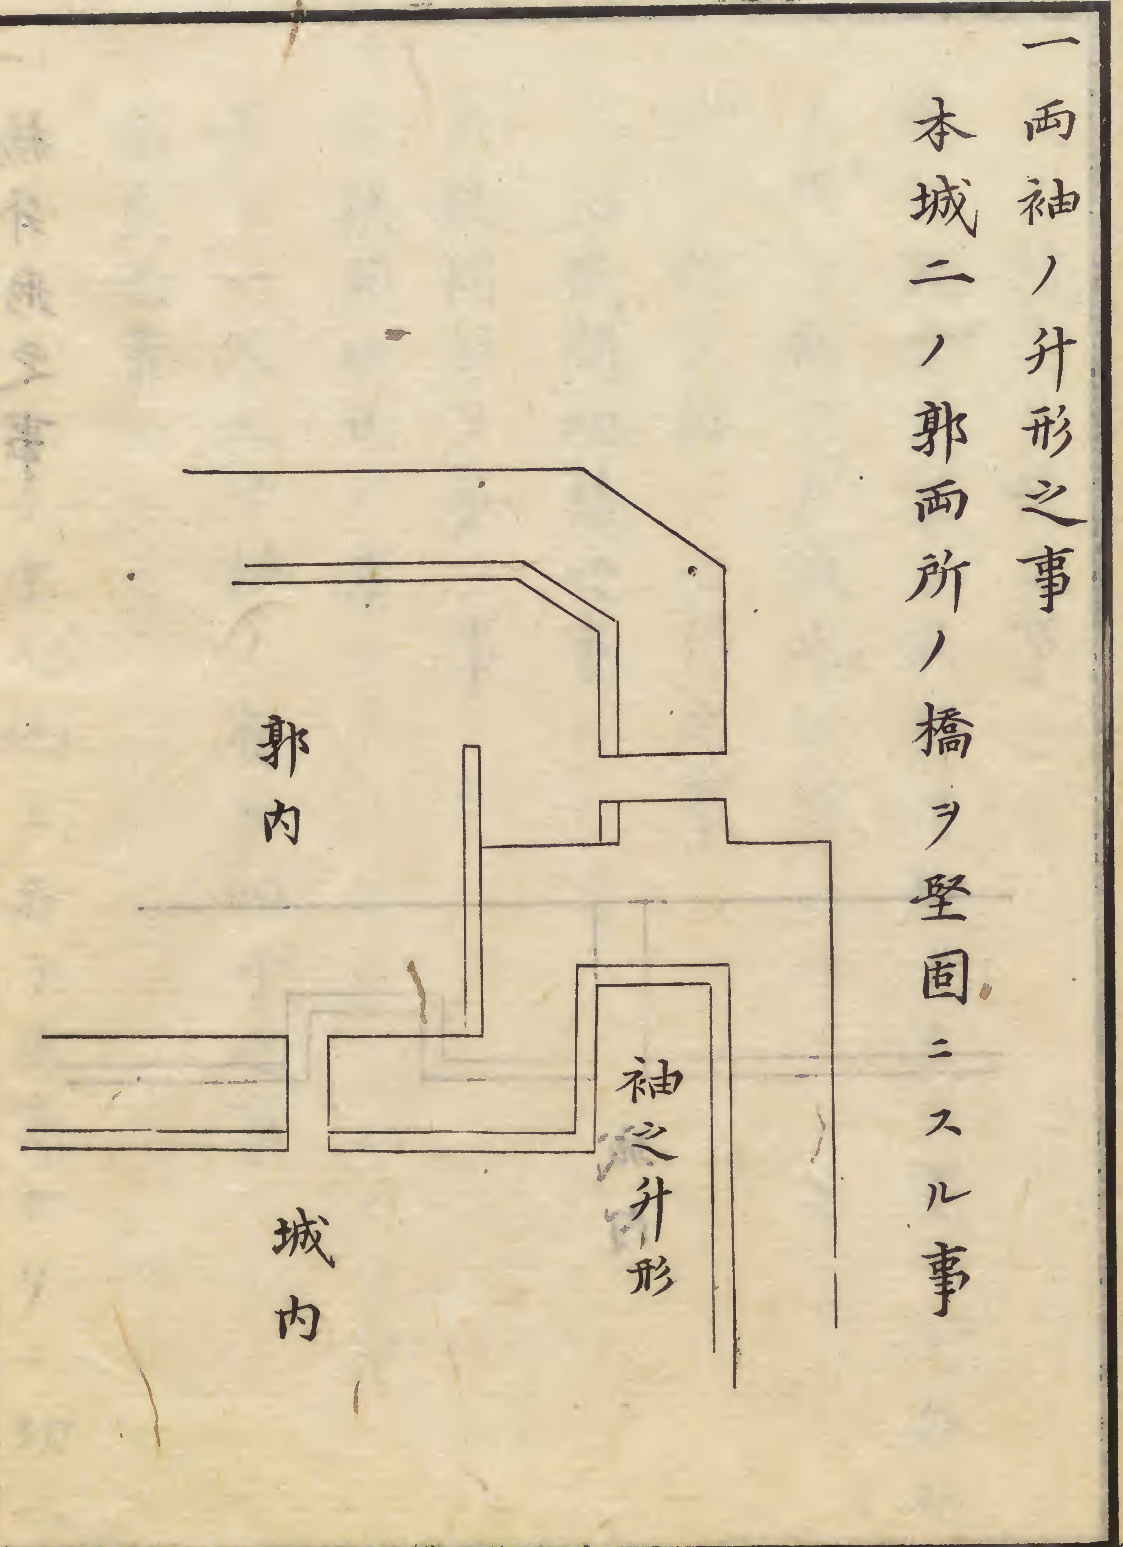 一両袖ノ升形之事
本城二ノ郭両所ノ橋ヲ堅固ニスル事
袖之升形
郭内
城内